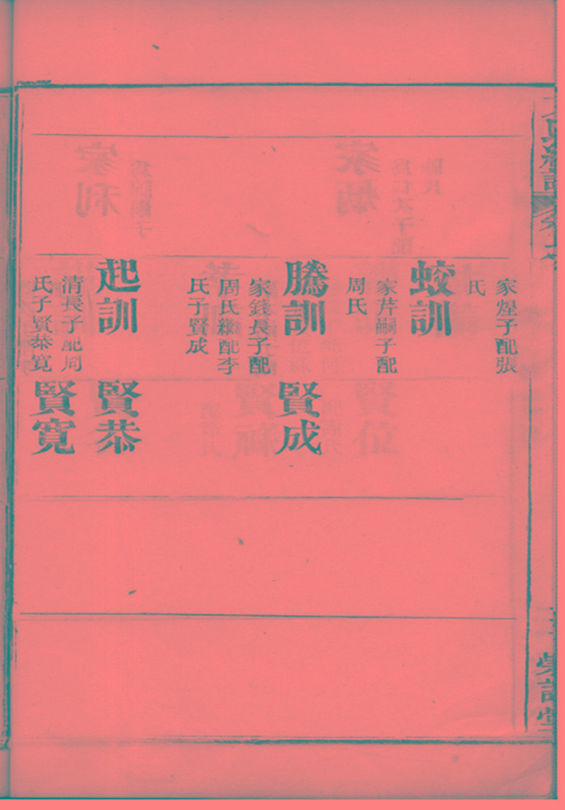 家煋子配張
氏
蛟訓
家芹嗣子配
周氏
騰訓
家錢長子配
周氏繼配李
氏子賢成
賢成
起訓
清長子配周
氏子賢恭寬
賢恭
賢寬